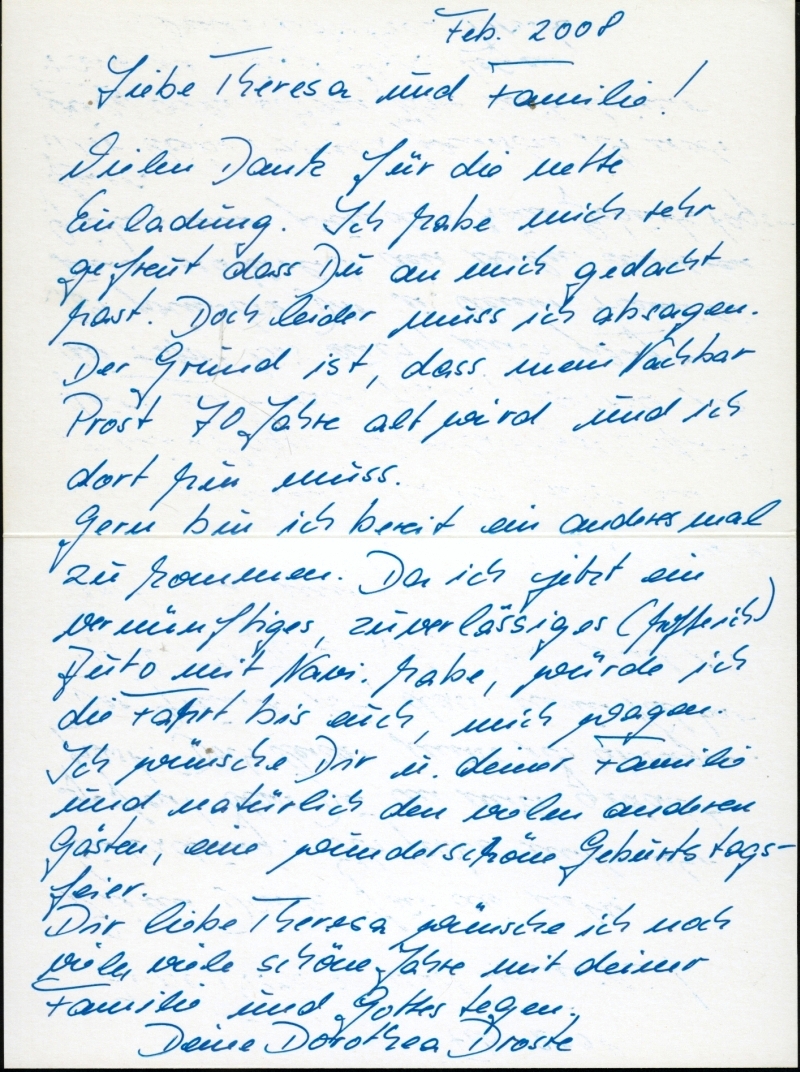 Feb. 2008
Liebe Theresa und Familie!
Vielen Dank für die nette
Einladung. Ich habe mich sehr
gefreut dass Du an mich gedacht
hast. Doch leider muss ich absagen.
Der Grund ist, dass mein Nachbar
Prost 70 Jahre alt wird und ich
dort hin muss.
Gern bin ich bereit ein anderes mal
zu kommen. Da ich jetzt ein
vernünftiges, zuverlässiges (hoffe ich)
Auto mit Navi. habe, würde ich
die Fahrt bis euch, mich wagen.
Ich wünsche Dir u. deiner Familie
und natürlich den vielen anderen
Gästen, eine wunderschöne Geburtstags-
feier.
Dir liebe Theresa wünsche ich noch
viele, viele schöne Jahre mit deiner
Familie und Gottes segen.
Deine Dorothea Droste